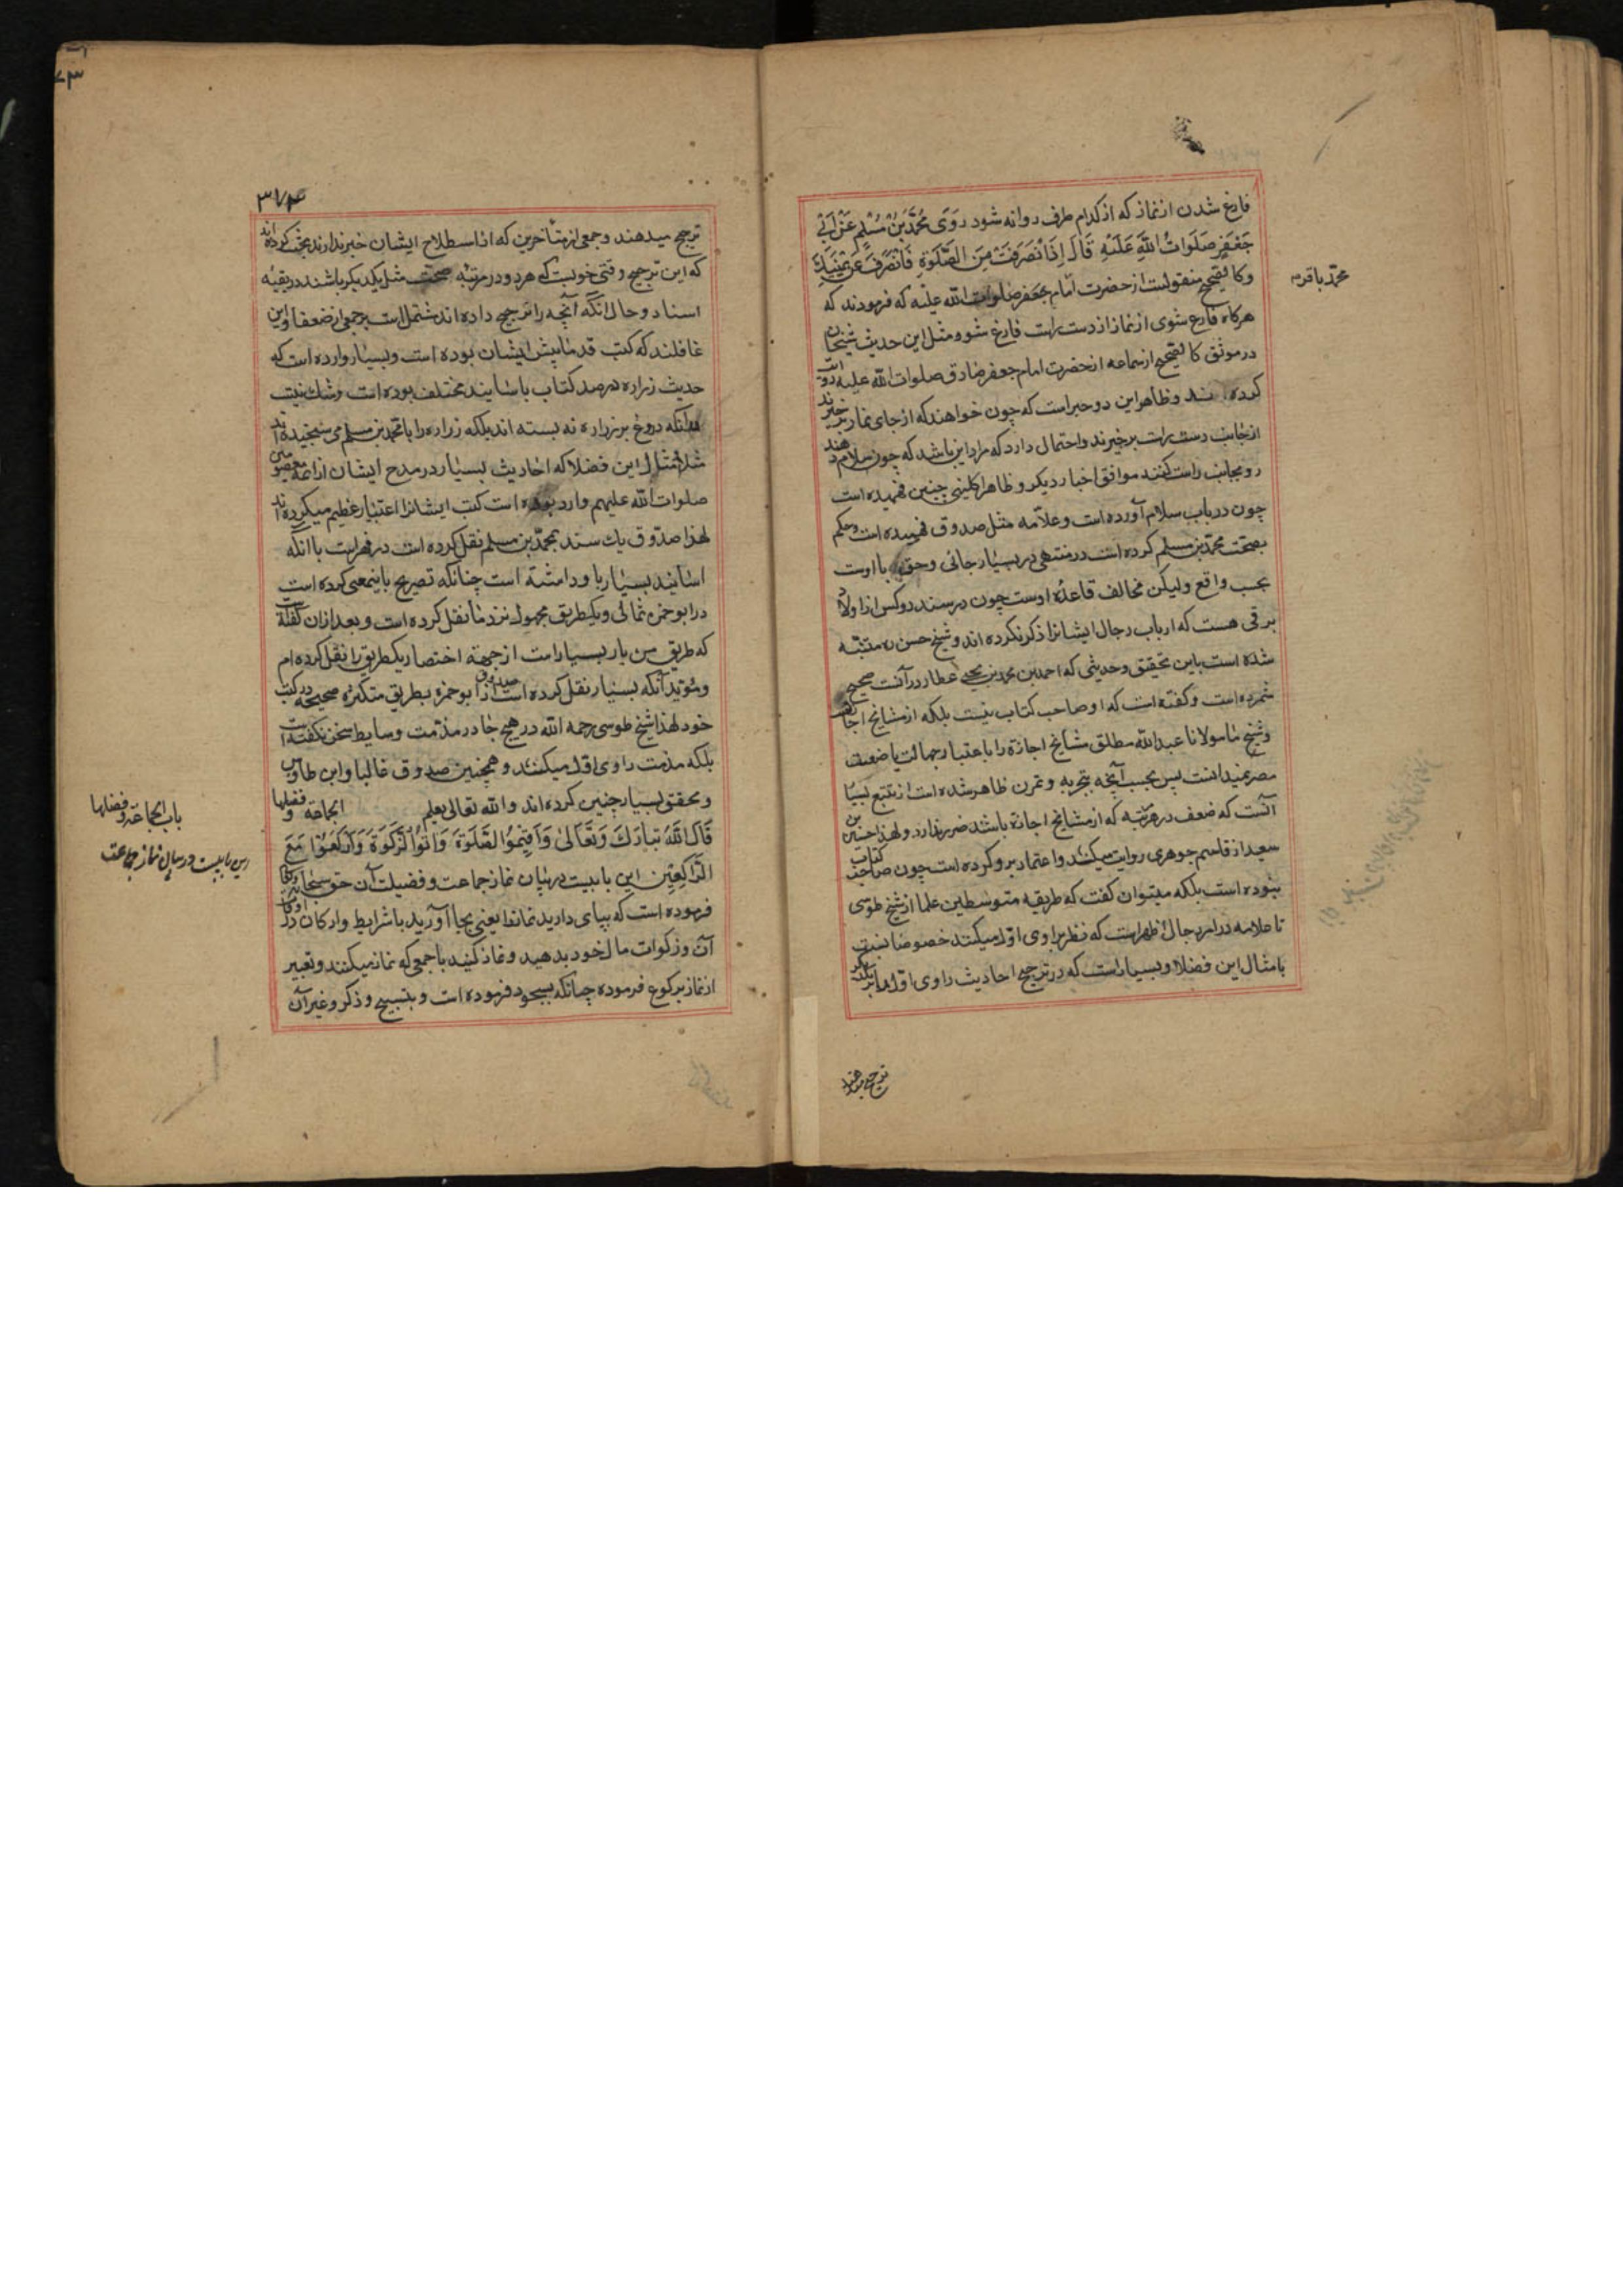 فارغ شدن از نماز که از کدام طرف روانه شود رَوَى مُحَمَّدُ بْنُ مُسْلِمٍ عَنْ اَبِي
جَعْفَرٍ صَلَوَاتُ اللهِ عَلَيْهِ قَالَ اِذَا نْصَرَفْتَ مِنَ الصَّلٰوةِ فَانْصَرِفْ عَنْ يَمِينِكَ
وکالصحیح منقولست از حضرت امام جعفر صلوات الله علیه که فرمودند که
هرکاه فارغ شوی از نماز از دست راست فارغ شو ومثل این حدیث شیخان
در موثق کالصحیح از سماعه از حضرت امام جعفر صادق صلوات الله علیه روایت
کرده اند وظاهر این دو خبر است که چون خواهند که از جای نماز برخیزند
از جانب دست راست برخیزند واحتمال دارد که مراد این باشد که چون سلام دهند
رو بجانب راست کنند موافق اخبار دیکر وظاهرا کلینی چنین فهمیده است
چون در باب سلام آورده است وعلامه مثل صدوق فهمیده است وحکم
بصحت محمد بن مسلم کرده است در منتهی در بسیار جائی وحق با اوست
بحسب واقع ولیکن مخالف قاعدۀ اوست چون در سند دو کس از اولاد
برقی هست که ارباب رجال ایشانرا ذکر نکرده اند وشیخ حسن ره متنبه
شده است باین تحقیق وحدیثی که احمد بن محمد بن یحیی عطار در آنست صحیح
شمرده است وکفته است که او صاحب کتاب نیست بلکه از مشایخ اجازت
وشیخ ما مولانا عبدالله مطلق مشایخ اجازة را باعتبار جهالت یا ضعف
مضر نمیدانست پس بحسب آنچه بتجربه وتمرن ظاهر شده است از تتبع بسیار
آنست که ضعف در هر مرتبه که از مشایخ اجازة باشد ضرر ندارد ولهذا حسین بن
سعید از قاسم جوهری روایت میکند واعتماد برو کرده است چون صاحب کتاب
نبوده است بلکه میتوان کفت که طریقه متوسطین علما از شیخ طوسی
تا علامه در امر رجال ظهر است که نظر براوی اول میکنند خصوصا نسبت
بامثال این فضلا وبسیار است که در ترجیح احادیث راوی اول را بر یکدیکر
ترجیح میدهند
محمد باقر
۳۷۴
ترجیح میدهند وجمعی از متأخرین که از اصطلاح ایشان خبر ندارند بحث کرده اند
که این ترجیح وقتی خوبست که هر دو در مرتبه صحت مثل یکدیکر باشند در بقیه
اسناد وحال انکه آنچه را ترجیح داده اند مشتمل است بر جمعی از ضعفا واین
غافلند که کتب قدما پیش ایشان بوده است وبسیار وارده است که
حدیث زراره در صد کتاب باسانید مختلف بوده است وشک نیست
در آنکه دروغ بر زراره نه بسته اند بلکه زراره را با محمد بن مسلم می سنجیده اند
مثلا امثال این فضلا که احادیث بسیار در مدح ایشان از ائمه معصومین
صلوات الله علیهم وارد بوده است کتب ایشانرا اعتبار عظیم میکرده اند
لهذا صدوق یک سند بمحمد بن مسلم نقل کرده است در فهرست با انکه
اسانید بسیار باو داشته است چنانکه تصریح باینمعنی کرده است
در ابو حمزه ثمالی ویکطریق مجهول نزد ما نقل کرده است وبعد ازان کفته است
که طریق من باو بسیار است از جهة اختصار یکطریق را نقل کرده ام
ومؤید آنکه بسیار نقل کرده است صدوق از ابو حمزه بطریق متکثره صحیحه در کتب
خود لهذا شیخ طوسی رحمه الله در هیچ جا در مذمت وسایط سخن نکفته است
بلکه مذمت راوی اول میکنند وهمچنین صدوق غالبا وابن طاوس
ومحقق بسیار چنین کرده اند والله تعالی یعلم الجماعة وفضلها
قَالَ اللهُ تَبَارَكَ وَتَعَالٰى وَاَقِيمُوا الصَّلٰوةَ وَاٰتُوا الزَّكٰوةَ وَارْكَعُوا مَعَ
الرَّاكِعِينَ این بابیست در بیان نماز جماعت وفضیلت آن حق سبحانه وتعالی
فرموده است که بپای دارید نماز را یعنی بجا آورید با شرایط وارکان در اوقات
آن وزکوات مال خود بدهید ونماز کنید با جمعی که نماز میکنند وتعبیر
از نماز برکوع فرموده چنانکه بسجود فرموده است وبتسبیح وذکر وغیر آن
باب الجماعة وفضلها
این بابیست در بیان نماز جماعت